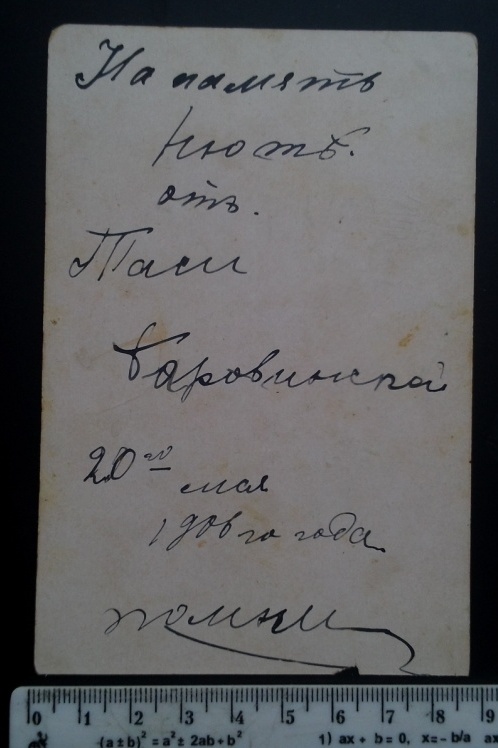 На память
Нютѣ.
отъ.
Таси
Баровинской
20го
мая
1906 го года.
помни
0 1 2 3 4 5 6 7 8 9
(a±b)² = a² ± 2ab + b² 1) ax + b = 0, x = - b/a ax